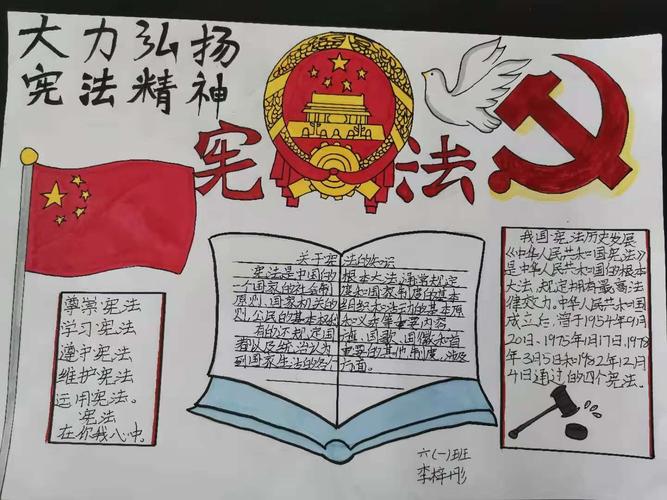 大力弘扬
宪法精神
宪 法
尊崇宪法
学习宪法
遵守宪法
维护宪法
运用宪法。
宪法
在你我心中。
关于宪法的知识
宪法是中国的根本大法,通常规定
一个国家的社会制度和国家制度的基本
原则、国家机关的组织和活动的基本原
则,公民的基本权利和义务等重要内容。
有的还规定国旗、国歌、国徽和首
都以及统治认为重要的其他制度,涉及
到国家生活的各个方面。
我国宪法历史发展
《中华人民共和国宪法》
是中华人民共和国的根本
大法,规定拥有最高法
律效力。中华人民共和国
成立后,曾于1954年9月
20日、1975年1月17日、1978
年3月5日和1982年12月
4日通过的四个宪法。
六(一)班
李梓彤